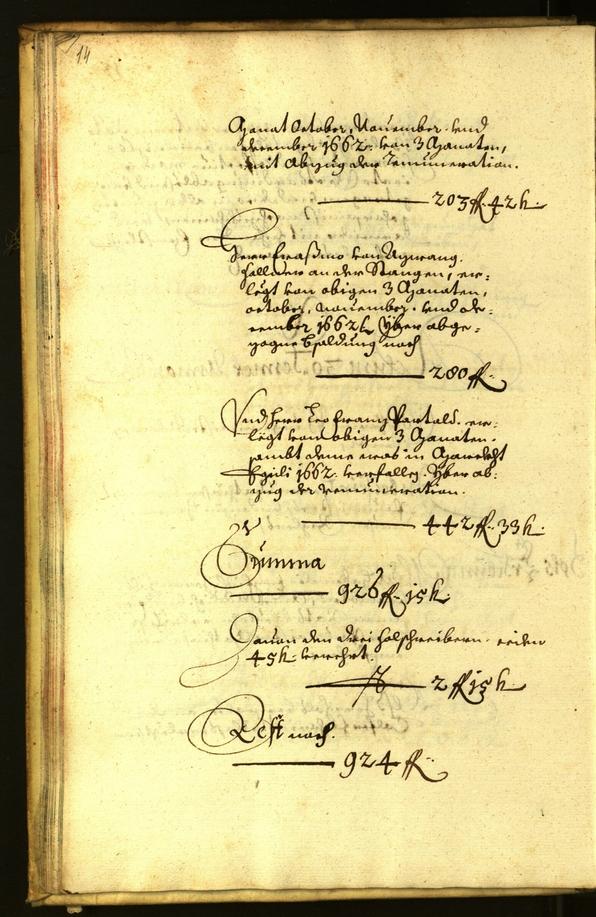 14
Monat October, Nouember. vnd
december 1662. von 3 Monaten,
mit Abzug der Remuneration.
203 ff. 42 k.
Herr Erasmo von
Zallner an der Stangen, er-
legt von obigen 3 Monaten,
october, nouember. vnd de-
cember 1662 Yber abge-
zogne bsoldung noch
280 ff.
Vnd Herr Leo Franz Partold. er-
legt von obigen 3 Monaten.
sambt deme was in
1662. verfallen. Yber ab-
zug der remuneration.
442 ff. 33 k.
Summa
926 ff. 15 k.
Dauon den drei Zolschreibern. ieden
45 k. verehrt.
2 ff 15 k.
Rest noch.
924 ff.